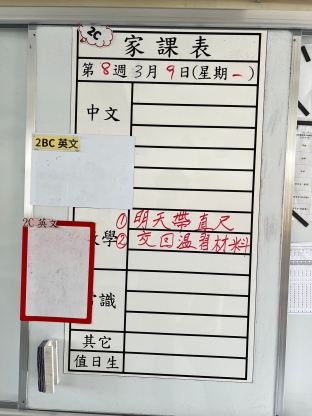 2C
家課表
第8週3月9日(星期一)
中文
2BC 英文
2C 英文
數學
①明天帶直尺
②交回溫習材料
識
其它
值日生